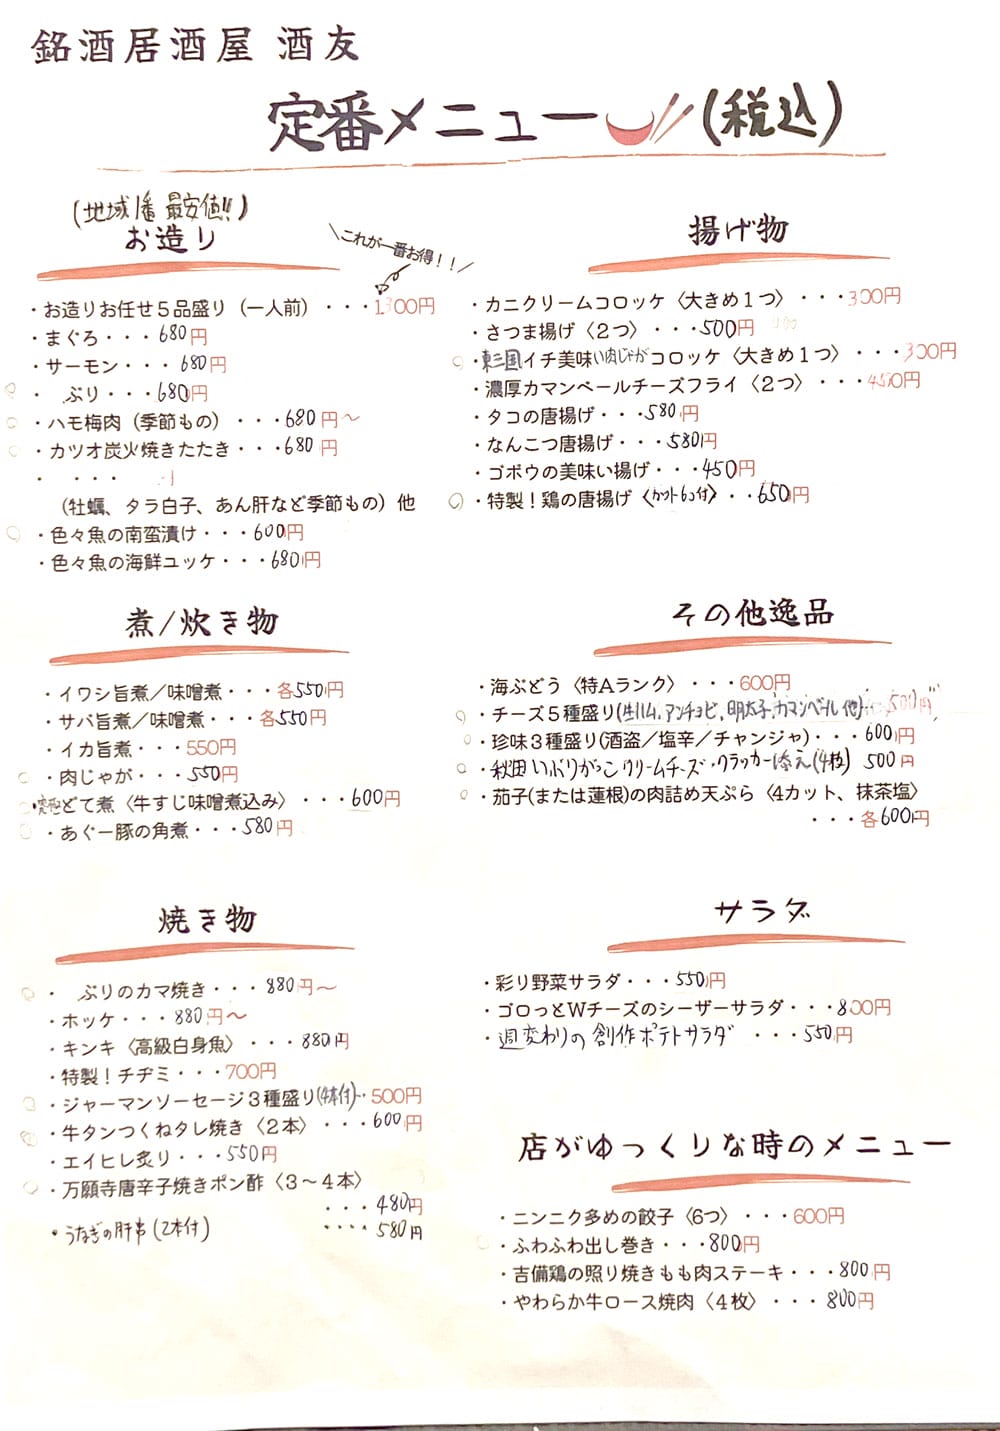 銘酒居酒屋 酒友
定番メニュー(税込)
(地域1番 最安値!!)
お造り
＼これが一番お得！！／
・お造りお任せ５品盛り（一人前）・・・1,300円
・まぐろ・・・680円
・サーモン・・・680円
・ぶり・・・680円
・ハモ梅肉（季節もの）・・・680円～
・カツオ炭火焼きたたき・・・680円
・ ・・・
（牡蠣、タラ白子、あん肝など季節もの）他
・色々魚の南蛮漬け・・・600円
・色々魚の海鮮ユッケ・・・680円
煮/炊き物
・イワシ旨煮／味噌煮・・・各550円
・サバ旨煮／味噌煮・・・各550円
・イカ旨煮・・・550円
・肉じゃが・・・550円
・どて煮〈牛すじ味噌煮込み〉・・・600円
・あぐー豚の角煮・・・580円
焼き物
・ぶりのカマ焼き・・・880円～
・ホッケ・・・880円～
・キンキ〈高級白身魚〉・・・880円
・特製！チヂミ・・・700円
・ジャーマンソーセージ３種盛り(4本付)・・500円
・牛タンつくねタレ焼き〈２本〉・・・600円
・エイヒレ炙り・・・550円
・万願寺唐辛子焼きポン酢〈３～４本〉
・・・480円
・うなぎの肝串(2本付) ・・・・580円
揚げ物
・カニクリームコロッケ〈大きめ１つ〉・・・300円
・さつま揚げ〈２つ〉・・・500円
・東三国イチ美味い肉じゃがコロッケ〈大きめ１つ〉・・・300円
・濃厚カマンベールチーズフライ〈２つ〉・・・450円
・タコの唐揚げ・・・580円
・なんこつ唐揚げ・・・580円
・ゴボウの美味い揚げ・・・450円
・特製！鶏の唐揚げ〈カット6コ付〉・・650円
その他逸品
・海ぶどう〈特Ａランク〉・・・600円
・チーズ５種盛り(生ハム,アンチョビ,明太子,カマンベール他)・・500円
・珍味３種盛り(酒盗／塩辛／チャンジャ)・・・600円
・秋田いぶりがっこクリームチーズ・クラッカー添え(4枚) 500円
・茄子(または蓮根)の肉詰め天ぷら〈4カット、抹茶塩〉
・・・各600円
サラダ
・彩り野菜サラダ・・・550円
・ゴロっとＷチーズのシーザーサラダ・・・800円
・週変わりの創作ポテトサラダ ・・・550円
店がゆっくりな時のメニュー
・ニンニク多めの餃子〈6つ〉・・・600円
・ふわふわ出し巻き・・・800円
・吉備鶏の照り焼きもも肉ステーキ・・・800円
・やわらか牛ロース焼肉〈４枚〉・・・800円